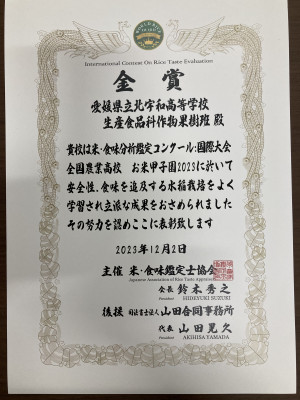 International Contest On Rice Taste Evaluation
金賞
愛媛県立北宇和高等学校
生産食品科作物果樹班 殿
貴校は米・食味分析鑑定コンクール:国際大会
全国農業高校 お米甲子園2023に於いて
安全性、食味を追及する水稲栽培をよく
学習され立派な成果をおさめられました
その努力を認めここに表彰致します
2023年12月2日
主催 米・食味鑑定士協会
Japanese Association of Rice Taste Appraisers
会長 鈴木秀之
President HIDEYUKI SUZUKI
後援 司法書士法人 山田合同事務所
代表 山田晃久
President AKIHISA YAMADA